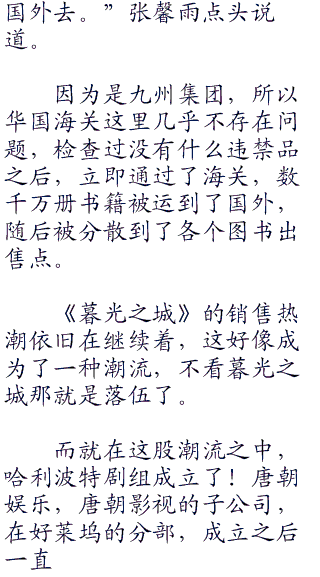 国外去。”张馨雨点头说
道。
因为是九州集团，所以
华国海关这里几乎不存在问
题，检查过没有什么违禁品
之后，立即通过了海关，数
千万册书籍被运到了国外，
随后被分散到了各个图书出
售点。
《暮光之城》的销售热
潮依旧在继续着，这好像成
为了一种潮流，不看暮光之
城那就是落伍了。
而就在这股潮流之中，
哈利波特剧组成立了！唐朝
娱乐，唐朝影视的子公司，
在好菜坞的分部，成立之后
一直